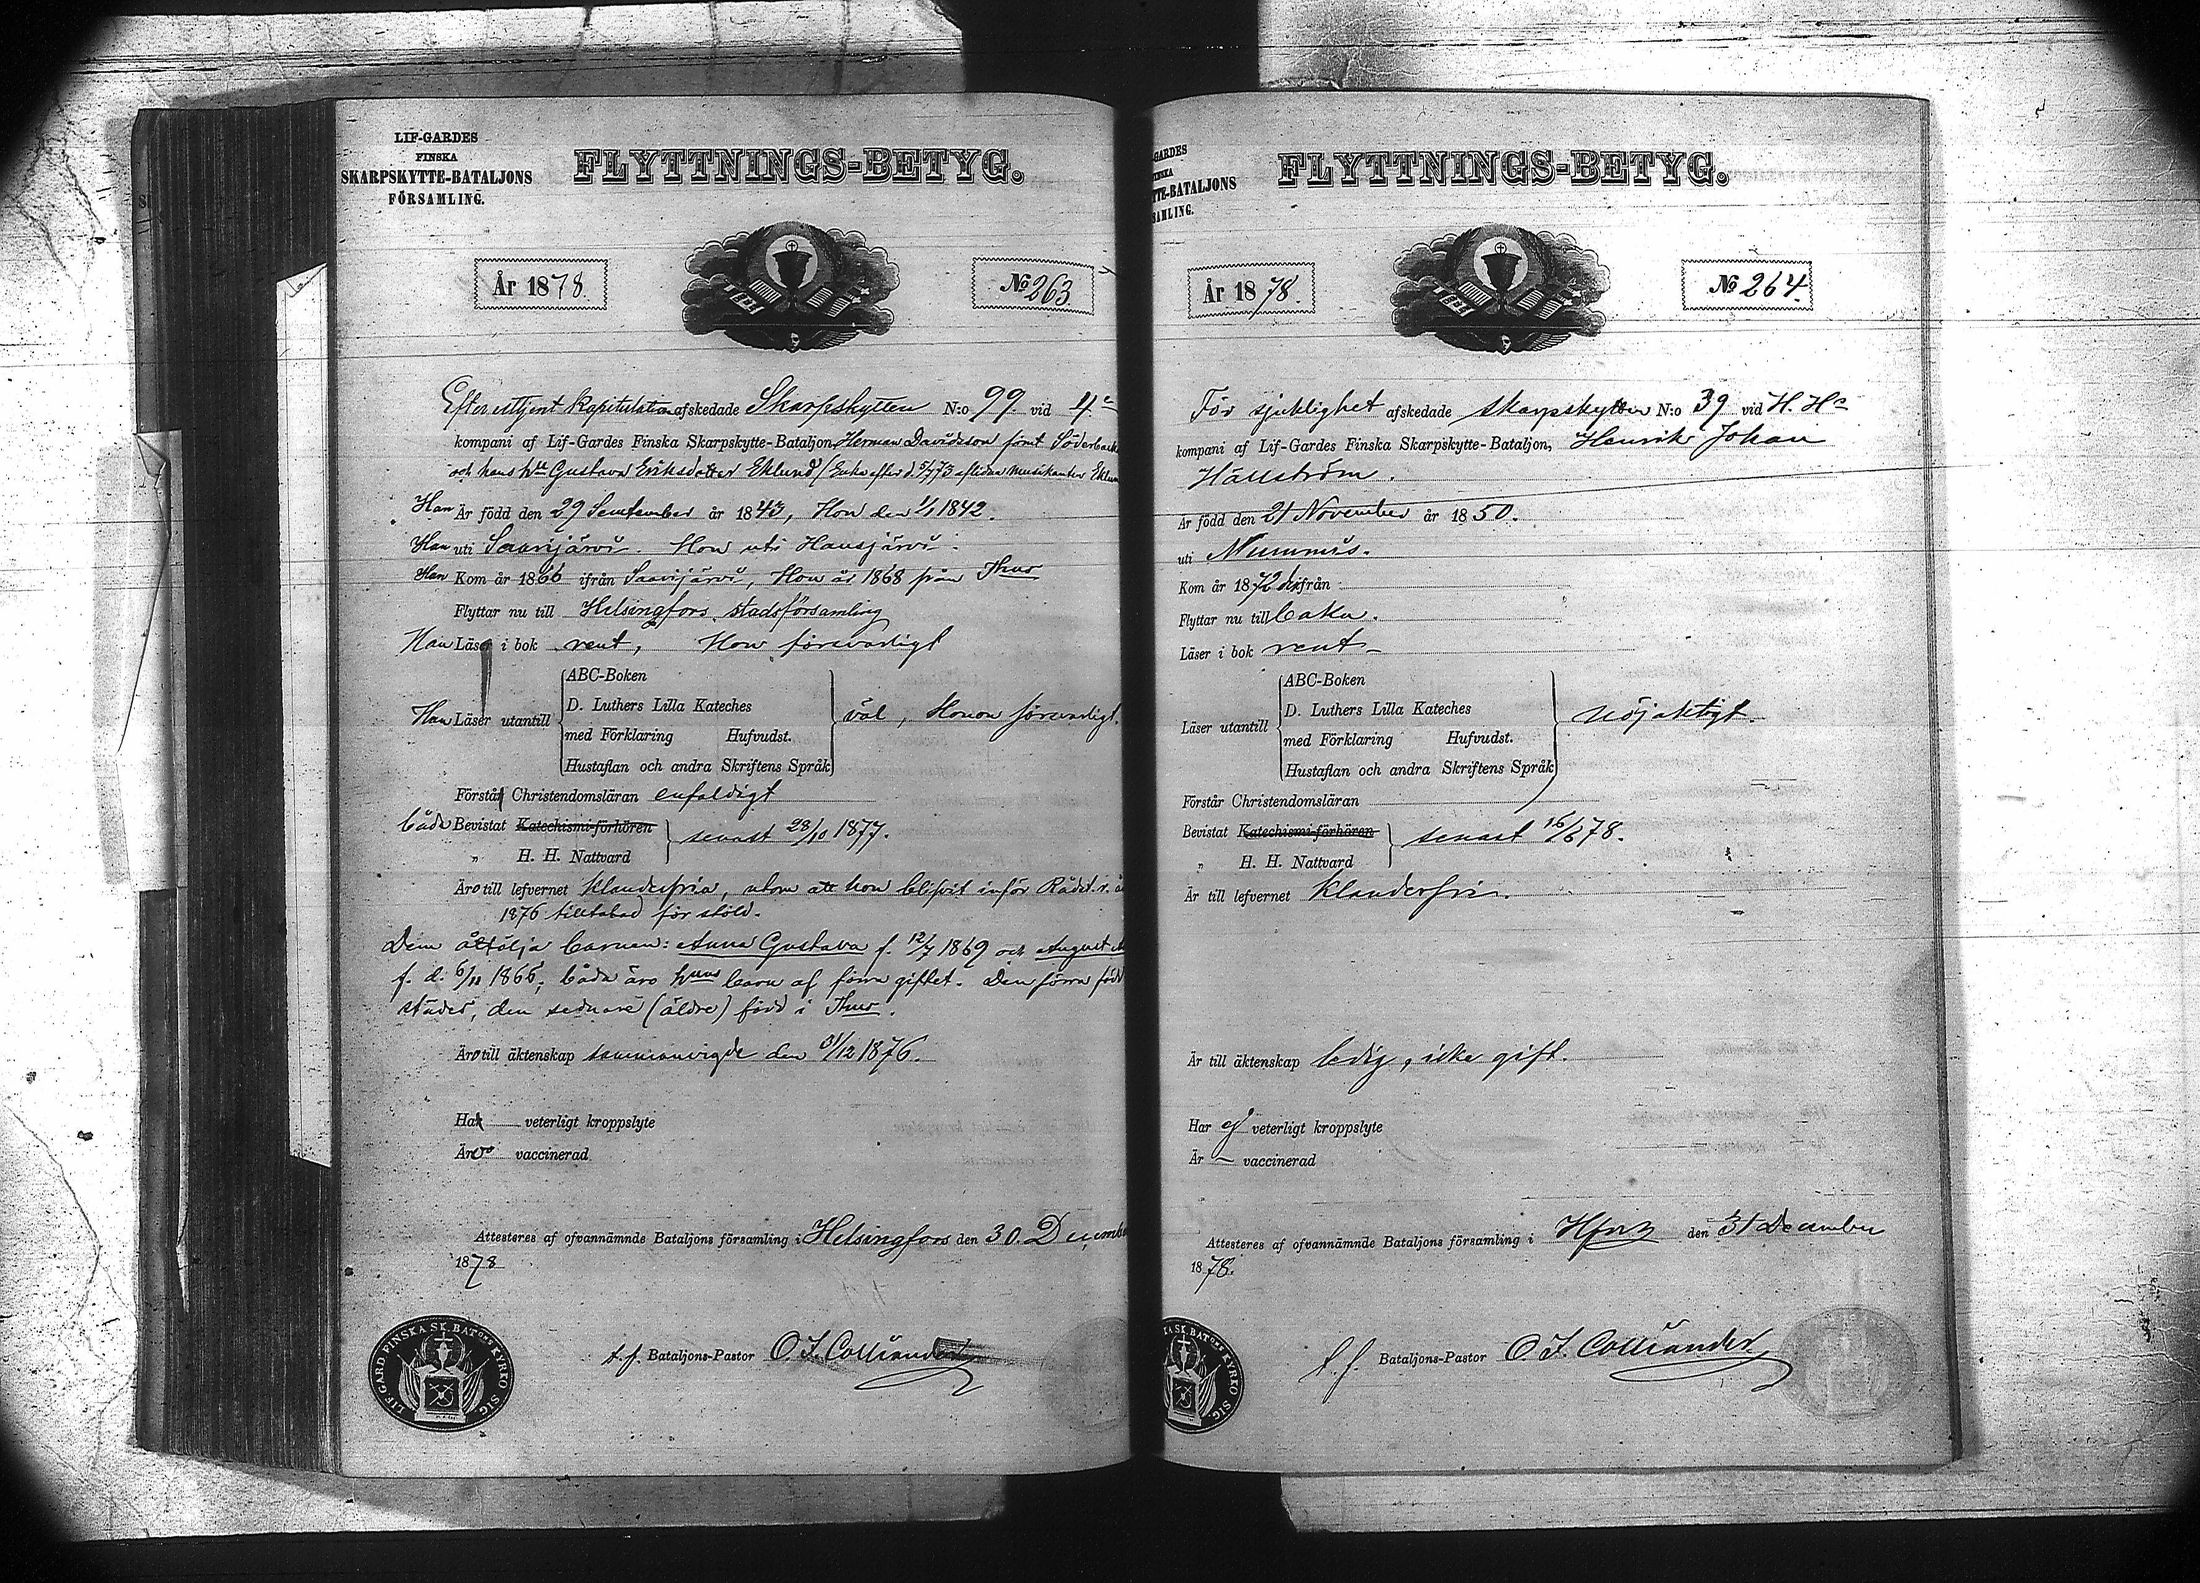 LIF-GARDES
FINSKA
SKARPSKYTTE-BATALJONS
FÖRSAMLING.
FLYTTNINGS-BETYG.
År 1878.
No 263.
Efter uttjent kapitulation afskedade Skarpskytten N:o 99. vid 4e
kompani af Lif-Gardes Finska Skarpskytte-Bataljon, Herman Davidsson förut
och hans Gustava Eriksdotter Eklund (Enka efter d. 5/7 73 aflidne Musikanten
Han Är född den 29 September år 1843, Hon den 1/1 1842.
Han uti Saarijärvi. Hon uti Hausjärvi.
Han Kom år 1866 ifrån Saarijärvi, Hon år 1868 från Thus
Flyttar nu till Helsingfors stadsförsamling
Han Läser i bok rent, Hon försvarligt
ABC-Boken
D. Luthers Lilla Kateches
Han Läser utantill väl, Honon försvarligt.
med Förklaring Hufvudst.
Hustaflan och andra Skriftens Språk
Förstå Christendomsläran enfaldigt
båda Bevistat Katechismi-förhören senast 28/10 1877.
„ H. H. Nattvard
Äro till lefvernet klanderfria, utom att hon blifvit inför Rådst.r.
1876 tilltalad för stöld.
Dem åtfölja barnen: Anna Gustava f. 12/7 1869 och August
f. d. 6/11 1866; båda äro barn af förra giftet. Den förra född
städes, den sednare (äldre) född i Thus.
Äro till äktenskap sammanvigde den 31/12 1876.
Ha veterligt kroppslyte
Äro vaccinerad
Attesteres af ofvannämnde Bataljons församling i Helsingfors den 30. December
1878
t.f. Bataljons-Pastor O. I. Colliander
LIF-GARD FINSKA SK. BATons KYRKO SIG.
-GARDES
TTE-BATALJONS
SAMLING.
FLYTTNINGS-BETYG.
År 1878.
No 264.
För sjuklighet afskedade skarpskytten N:o 39 vid H. Hs
kompani af Lif-Gardes Finska Skarpskytte-Bataljon, Henrik Johan
Hällström.
Är född den 21 November år 1850.
uti Nummis.
Kom år 1872 ifrån
Flyttar nu till
Läser i bok rent
ABC-Boken
D. Luthers Lilla Kateches
Läser utantill nöjaktigt
med Förklaring Hufvudst.
Hustaflan och andra Skriftens Språk
Förstår Christendomsläran
Bevistat Katechismi-förhören senast 16/6 78.
„ H. H. Nattvard
Är till lefvernet klanderfri.
Är till äktenskap ledig, icke gift.
Har ej veterligt kroppslyte
Är – vaccinerad
Attesteres af ofvannämnde Bataljons församling i Hfors den 31 December
1878.
t.f. Bataljons-Pastor O. I. Colliander.
KA SK. BATons KYRKO SIG.